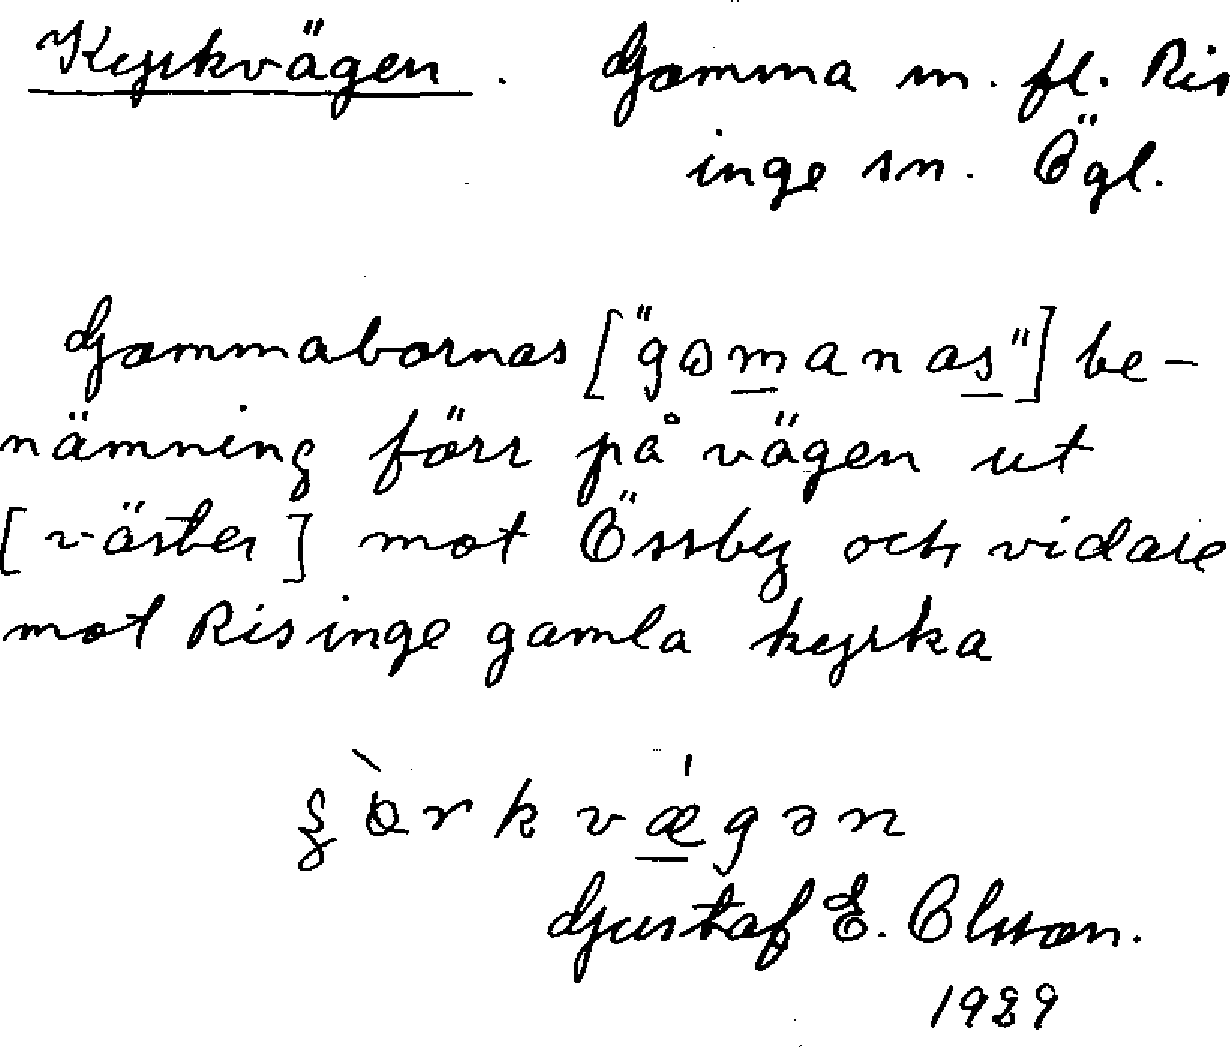 Kyrkvägen. Gomma m. fl. Ris
inge sn. Ögl.
Gommabornas ["gɷmanas"] be-
nämning förr på vägen ut
[väster] mot Össby och vidare
mot Risinge gamla kyrka
Gustaf E. Olsson.
1929